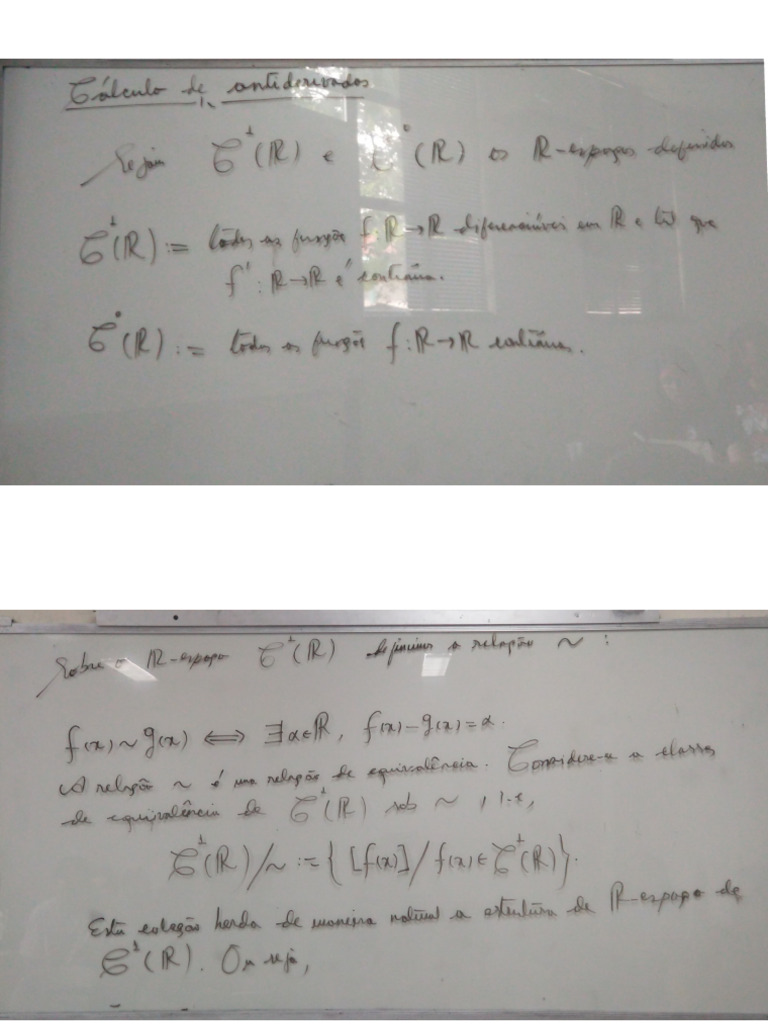 Cálculo de antiderivadas
Sejam C¹(ℝ) e C⁰(ℝ) os ℝ-espaços definidos
C¹(ℝ) := todas as função f:ℝ→ℝ diferenciáveis em ℝ e tal que
f' : ℝ→ℝ é contínua.
C⁰(ℝ) := todas as função f:ℝ→ℝ contínuas.
Sobre o ℝ-espaço C¹(ℝ) definimos a relação ~ :
f(x) ~ g(x) ⟺ ∃ α∈ℝ, f(x) - g(x) = α.
A relação ~ é uma relação de equivalência. Considere-se a classe
de equivalência de C¹(ℝ) sob ~, i.e.,
C¹(ℝ)/~ := { [f(x)] / f(x) ∈ C¹(ℝ) }.
Esta coleção herda de maneira natural a estrutura de ℝ-espaço de
C¹(ℝ). Ou seja,